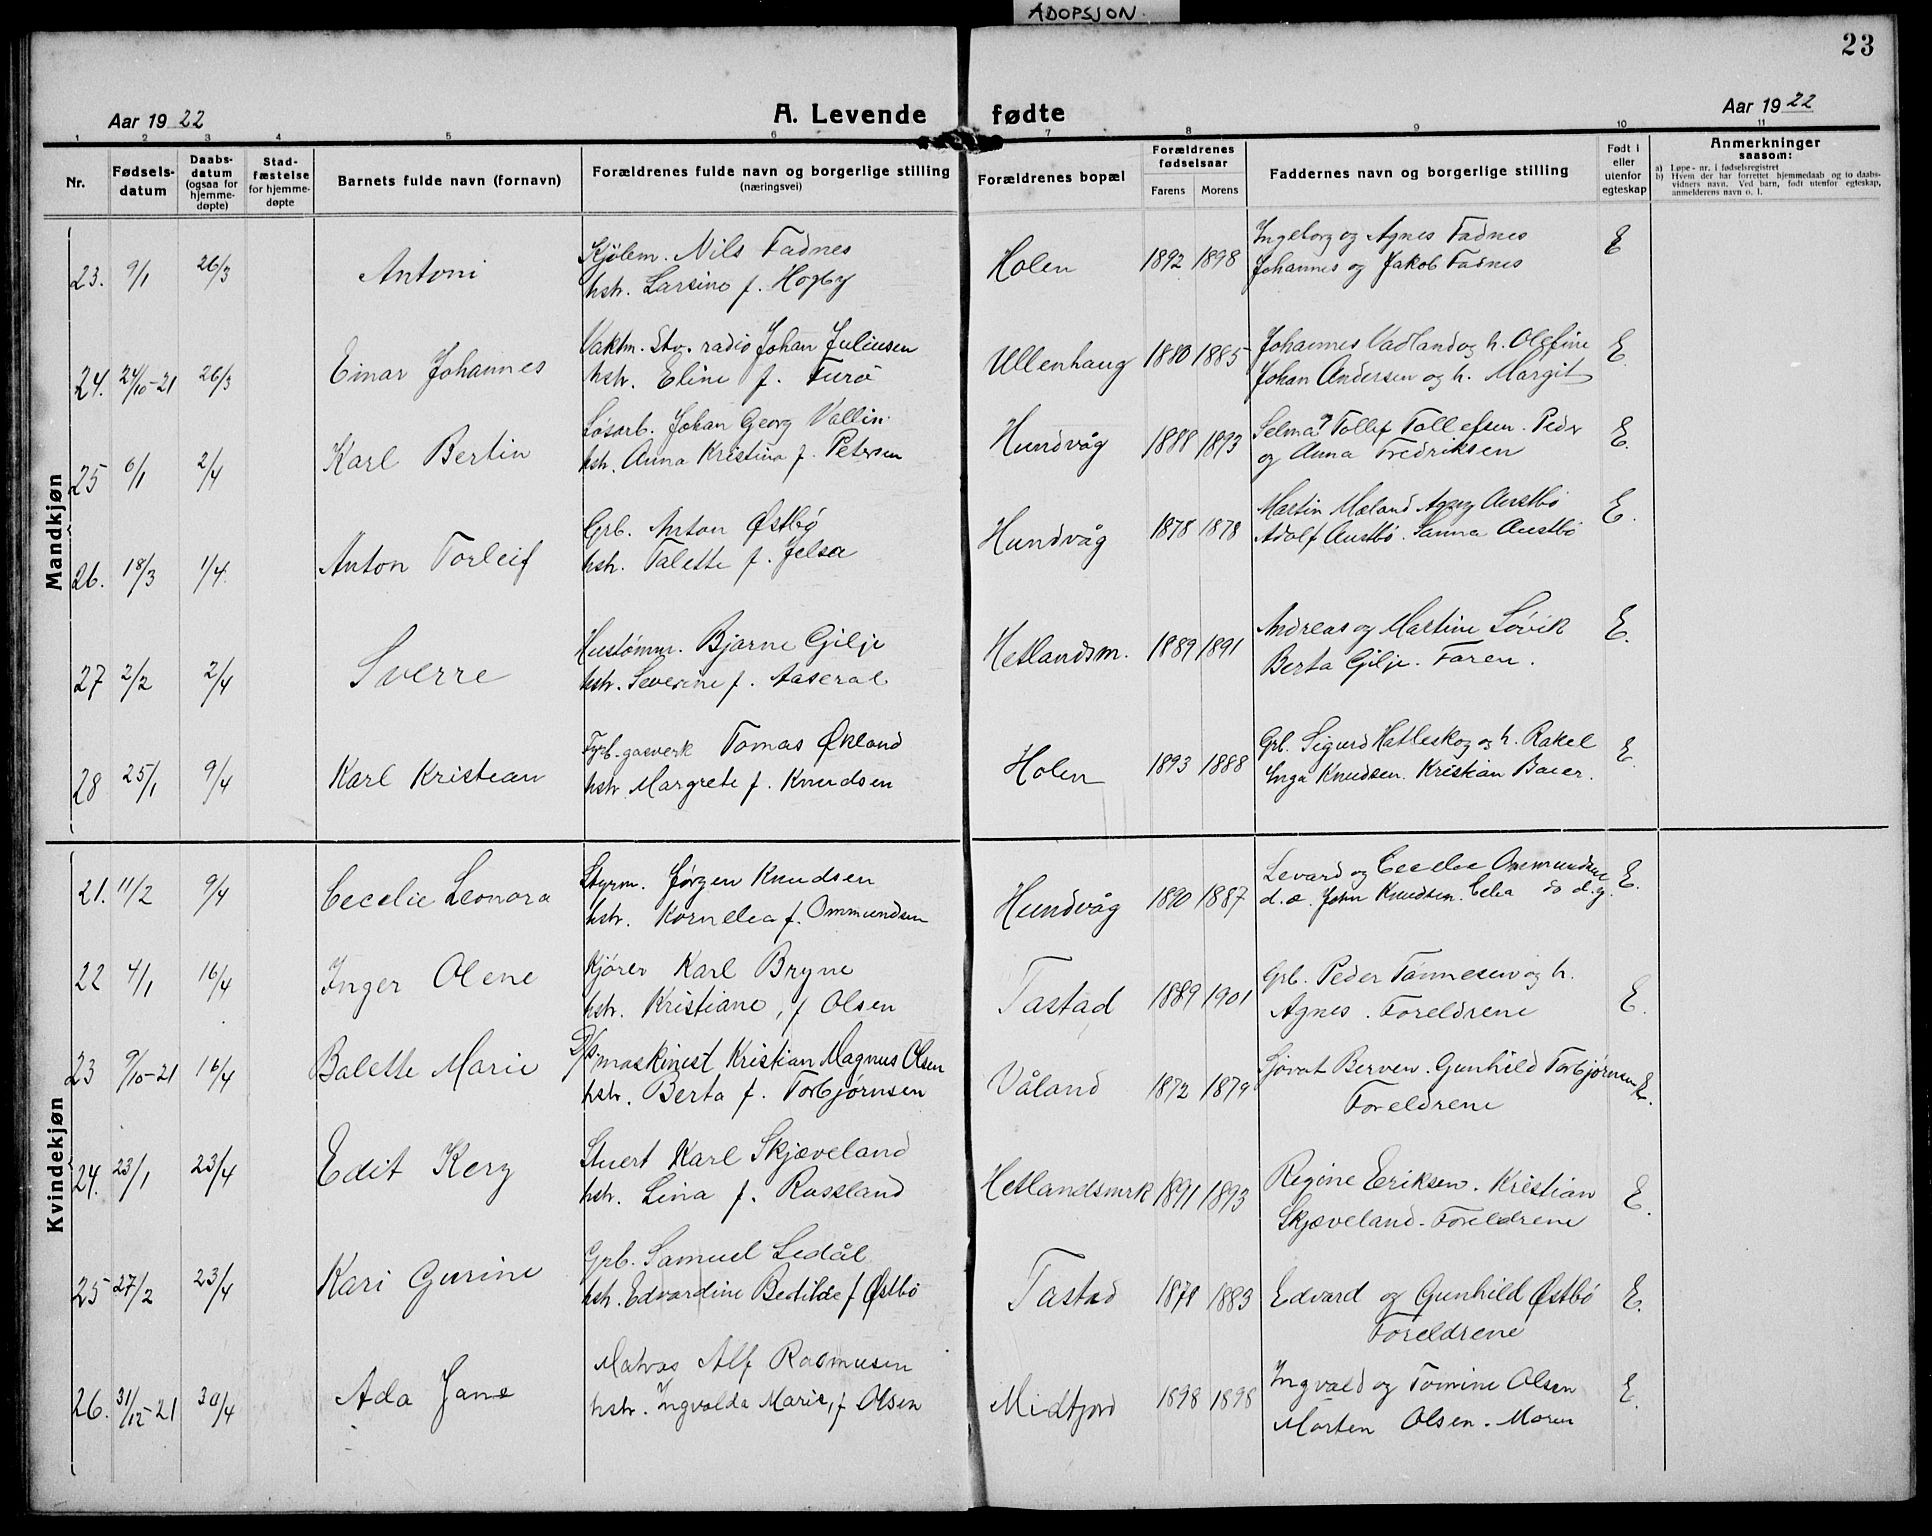 ADOPSJON.
23
Aar 1922
A. Levende fødte
Aar 1922
1 2 3 4 5 6 7 8 9 10 11
Nr.
Fødsels-
datum
Daabs-
datum
(ogsaa for
hjemme-
døpte)
Stad-
fæstelse
for hjemme-
døpte
Barnets fulde navn (fornavn)
Forældrenes fulde navn og borgerlige stilling
(næringsvei)
Forældrenes bopæl
Forældrenes
fødselsaar
Farens Morens
Faddernes navn og borgerlige stilling
Født i
eller
utenfor
egteskap
Anmerkninger
saasom:
a) Løpe-nr. i fødselsregistret
b) Hvem der har forrettet hjemmedaab og to daabs-
vidners navn. Ved barn, født utenfor egteskap,
anmelderens navn o. l.
Mandkjøn
23. 9/1 26/3 Antoni
Kjølem. Nils Fadnes
hstr. Larsine f. Høyby
Holen 1892 1898
Ingeborg og Agnes Fadnes
Johannes og Jakob Fadnes
E
24. 24/10-21 26/3 Einar Johannes
Vaktm. Stv. radio Johan Juliusen
hstr. Eline f. Furø
Ullenhaug 1880 1885
Johannes Vadland og h. Olefine
Johan Andersen og h. Margit
E.
25 6/1 2/4 Karl Bertin
Løsarb. Johan Georg Vallin
hstr. Anna Kristina f. Petersen
Hundvåg 1888 1893
Selma og Tollef Tollefsen. Peder
og Anna Fredriksen
E.
26. 18/3 1/4. Anton Torleif
Grb. Anton Østbø
hstr. Talette f. Jelsa
Hundvåg 1878 1878
Martin Mæland Agny Austbø
Adolf Austbø. Sanna Austbø
E.
27 2/2 2/4 Sverre
Hustømm. Bjarne Gilje
hstr. Severine f. Aaseral
Hetlandsm. 1889 1891
Andreas og Martine Løvik
Berta Gilje. Faren.
E.
28 25/1 9/4 Karl Kristian
Fyrb. gasverk Tomas Økland
hstr Margrete f. Knudsen
Holen 1893 1888
Grb. Sigurd Hatleskog og h. Rakel
Inga Knudsen. Kristian Baier.
E.
Kvindekjøn
21. 11/2 9/4 Cecelie Leonora
Styrm. Jørgen Knudsen
hstr. Kornelia f. Ommundsen
Hundvåg 1890 1887
Levard og Cecelie Ommundsen
d.æ. John Knudsen. Celia do d.y.
E.
22 4/1 16/4 Inger Olene
Kjører Karl Bryne
hstr. Kristiane, f Olsen
Tastad 1889 1901
Grb. Peder Tønnesen og h.
Agnes. Foreldrene
E.
23 9/10-21 16/4 Balette Marie
D/s maskinist Kristian Magnus Olsen
hstr. Berta f. Torbjørnsen
Våland 1872 1879
Sjovat Berven. Gunhild Torbjørnsen
Foreldrene
E.
24. 23/1 23/4 Edit Kery
Stuert Karl Skjæveland
hstr. Lina f. Rossland
Hetlandsmrk 1891 1893
Regine Eriksen. Kristian
Skjæveland. Foreldrene
E.
25 27/2 23/4 Kari Gurine
Grb. Samuel Ledål
hstr. Edvardine Bertilde f Østbø
Tastad 1878 1883
Edvard og Gunhild Østbø
Foreldrene
E.
26. 31/12-21 30/4 Ada Jane
Matros Alf Rasmusen
hstr. Ingvalda Marie, f Olsen
Midtjord 1898 1898
Ingvald og Tomine Olsen
Morten Olsen. Moren
E.